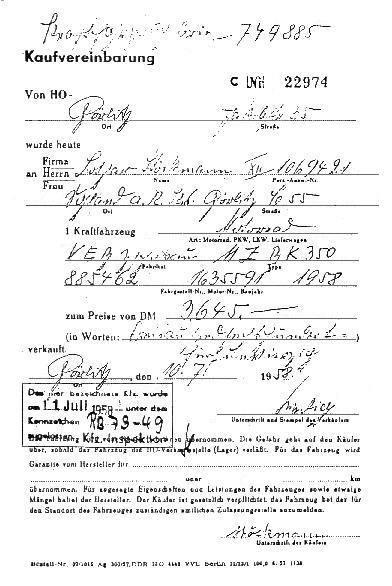 749885
Kaufvereinbarung
C Nr 22974
Von HO-
Görlitz
Ort Straße
wurde heute
Firma
an Herrn Lothar Stöckmann XII 1069421
Frau Name Pers.-Ausw.-Nr.
a. R. Görlitz 55
Ort Straße
1 Kraftfahrzeug Motorrad
Art: Motorrad, PKW, LKW, Lieferwagen
VEB Zschopau MZ BK 350
Fabrikat Type
885462 1635591 1958
Fahrgestell-Nr., Motor-Nr., Baujahr
zum Preise von DM 3645.—
(in Worten:
verkauft. fünfundvierzig
Görlitz, den 10.7. 1958
Ort
Unterschrift und Stempel des Verkäufers
Das hier bezeichnete Kfz. wurde
am 11. Juli 1958 unter dem
Kennzeichen RB 79-49
zugelassen Kfz.-Inspektion
übernommen. Die Gefahr geht auf den Käufer
über, sobald das Fahrzeug die HO-Verkaufsstelle (Lager) verläßt. Für das Fahrzeug wird
Garantie vom Hersteller für
oder km
übernommen. Für zugesagte Eigenschaften und Leistungen des Fahrzeuges sowie etwaige
Mängel haftet der Hersteller. Der Käufer ist gesetzlich verpflichtet, das Fahrzeug bei der für
den Standort des Fahrzeuges zuständigen amtlichen Zulassungsstelle anzumelden.
Stöckmann
Unterschrift des Käufers
Bestell-Nr.